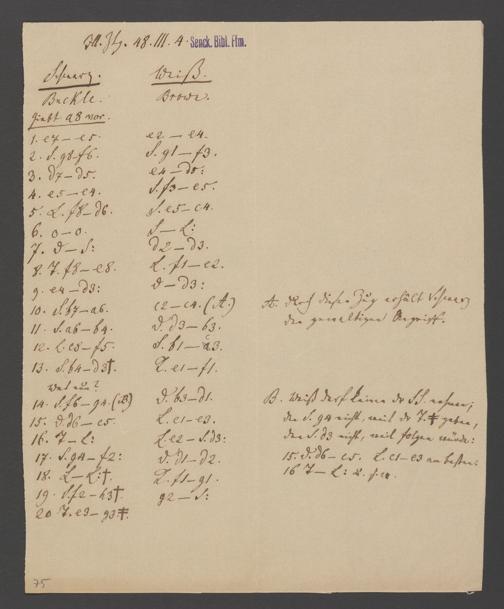 48.III.4. Senck. Bibl. Ffm.
Schwarz. Weiß.
Buckle. Brown.
giebt a8 vor.
1. e7–e5. e2–e4.
2. S. g8–f6. S. g1–f3.
3. d7–d5. e4–d5:
4. e5–e4. S. f3–e5.
5. L. f8–d6. S. e5–c4.
6. o–o. S–L:
7. D–S: d2–d3.
8. T. f8–e8. L. f1–e2.
9. e4–d3: D–d3:
10. S. b7–a6. c2–c4. (A.) A. Durch diesen Zug erhält Schwarz
11. S. a6–b4. D. d3–b3. den gewaltigen Angriff.
12. L. c8–f5. S. b1–a3.
13. S. b4–d3†. K. e1–f1.
was nun?
14. S. f6–g4. (B) D. b3–d1. B. Weiß darf keinen der S.S. nehmen;
15. D. d6–c5. L. c1–e3. den S. g4 nicht, weil der T. ‡ geben,
16. T–L: L. e2–S. d3: den S. d3 nicht, weil folgen würde:
17. S. g4–f2: D. d1–d2. 15. D. d6–c5. L. c1–e3 am besten.
18. L–L:†. K. f1–g1. 16 T–L: u. s. w.
19. S. f2–h3†. g2–S:
20 T. e3–g3‡.
75